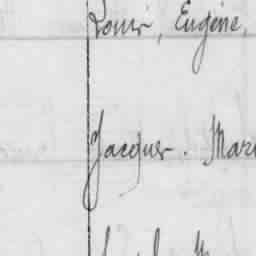 Louis, Eugène,
Jacques. Mari